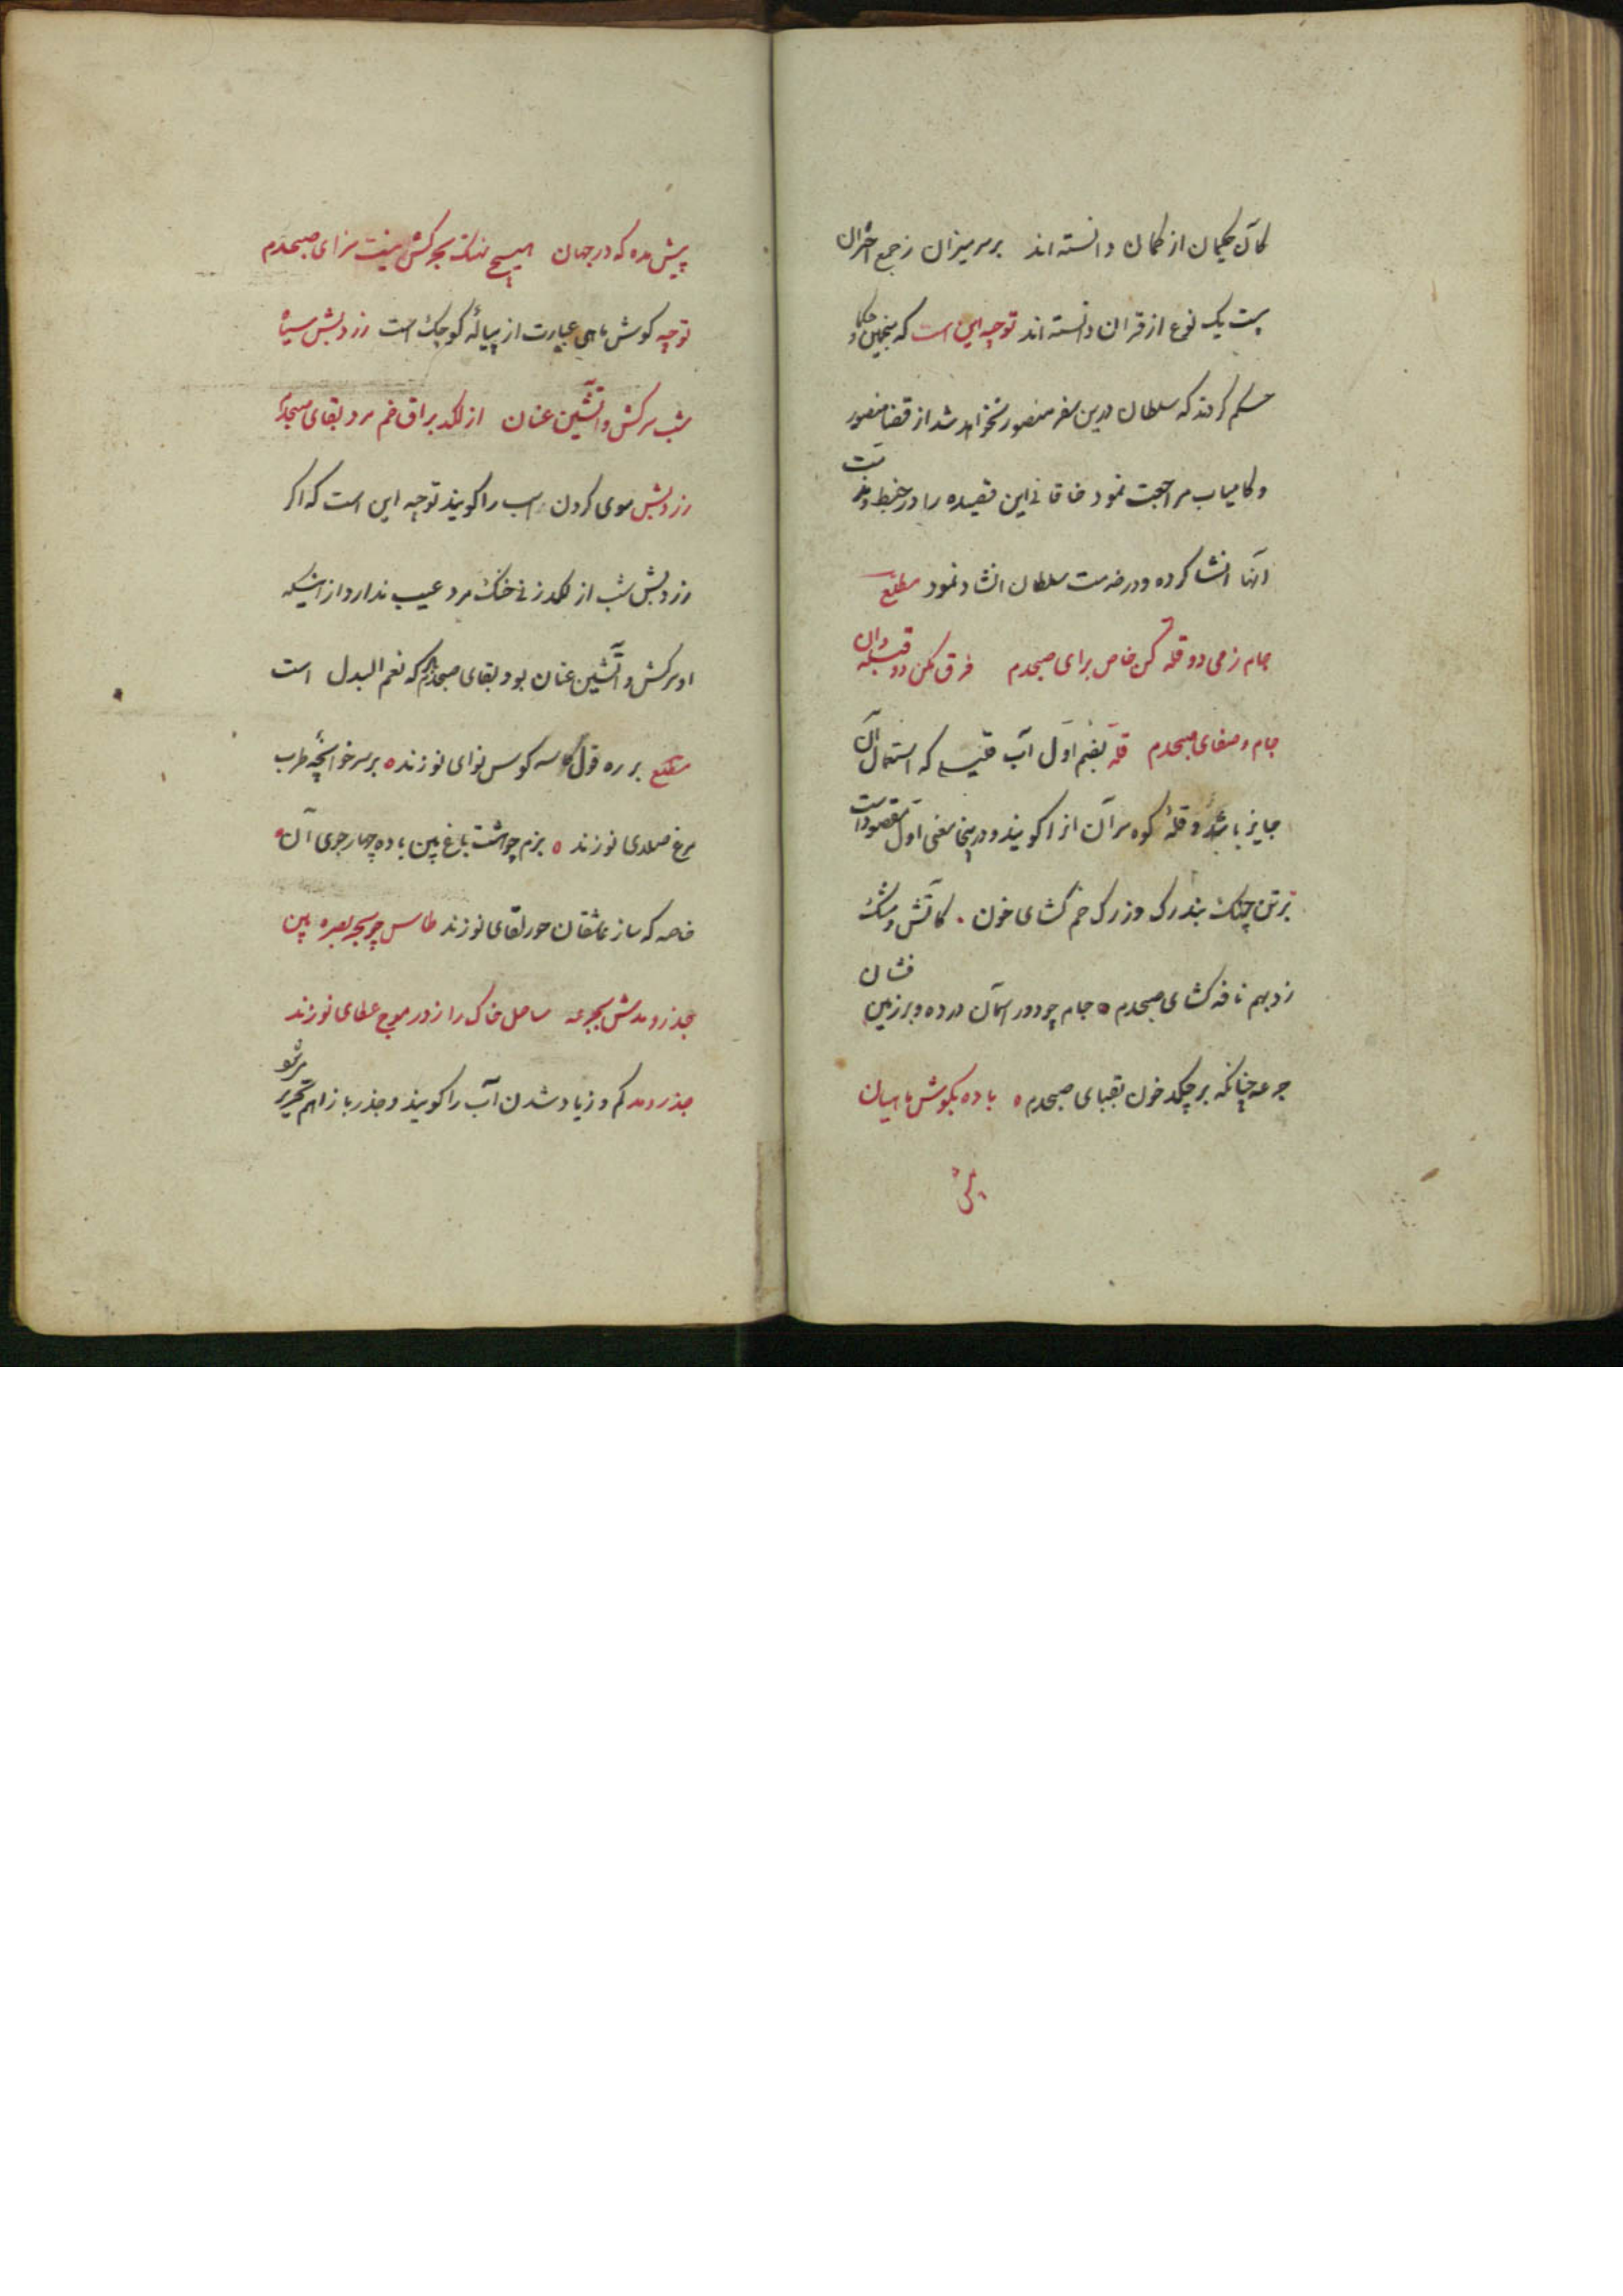 کان حکیمان از کمان دانسته اند برسر میزان ز جمع اختران
بیست یک نوع از قران دانسته اند توجیه این است که منجمین و حکما
حکم کردند که سلطان درین سفر منصور نخواهد شد از قضا منصور
و کامیاب مراجعت نمود خاقانی این قصیده را در خبط و مذمت
آنها انشا کرده و در خدمت سلطان انشاد نمود مطلع
جام ز می دو قله کن خاص برای صبحدم فرق مکن دو قبله دان
جام و صفای صبحدم قله بضم اول آب قلیلی که استعمال آن
جایز باشد و قله کوه سر آن را گویند و در ینجا معنی اول مقصود است
بر تن چنک بند رک وز رک خم کشای خون کاتش و مشک
زد بهم نافه کشای صبحدم جام چو دور آسمان در ده و بر زمین فشان
جرعه چنانکه بر چکد خون بقبای صبحدم باده بکوش ماهیان
پیش
پیش مده که در جهان هیچ نهنک بحر کش نیست سزای صبحدم
توجیه کوش ماهی عبارت از پیاله کوچک است رزد بش سیاه
شب سرکش و آتشین عنان از لکد براق خم مرد بقای صبحدم
بش موی کردن اسب را کویند توجیه این است که اکر
بش شب از لکد زنی خنک مرد عیب ندارد از اینکه
او سرکش و آتشین عنان بود بقای صبحدم که نعم البدل است
مطلع بر ره قول کاسه کوس نوای نو زند بر سر خوانچه طرب
مرغ صلای نو زند بزم چو هشت باغ بین باده چهار جوی آن
خاصه که ساز عاشقان حور لقای نو زند طاس چو بحر بصره بین
جزر و مدش بجرعه ساحل خاک را ز در موج عطای نو زند
جذر و مد کم و زیاد شدن آب را کویند و جذر با زا هم تحریر